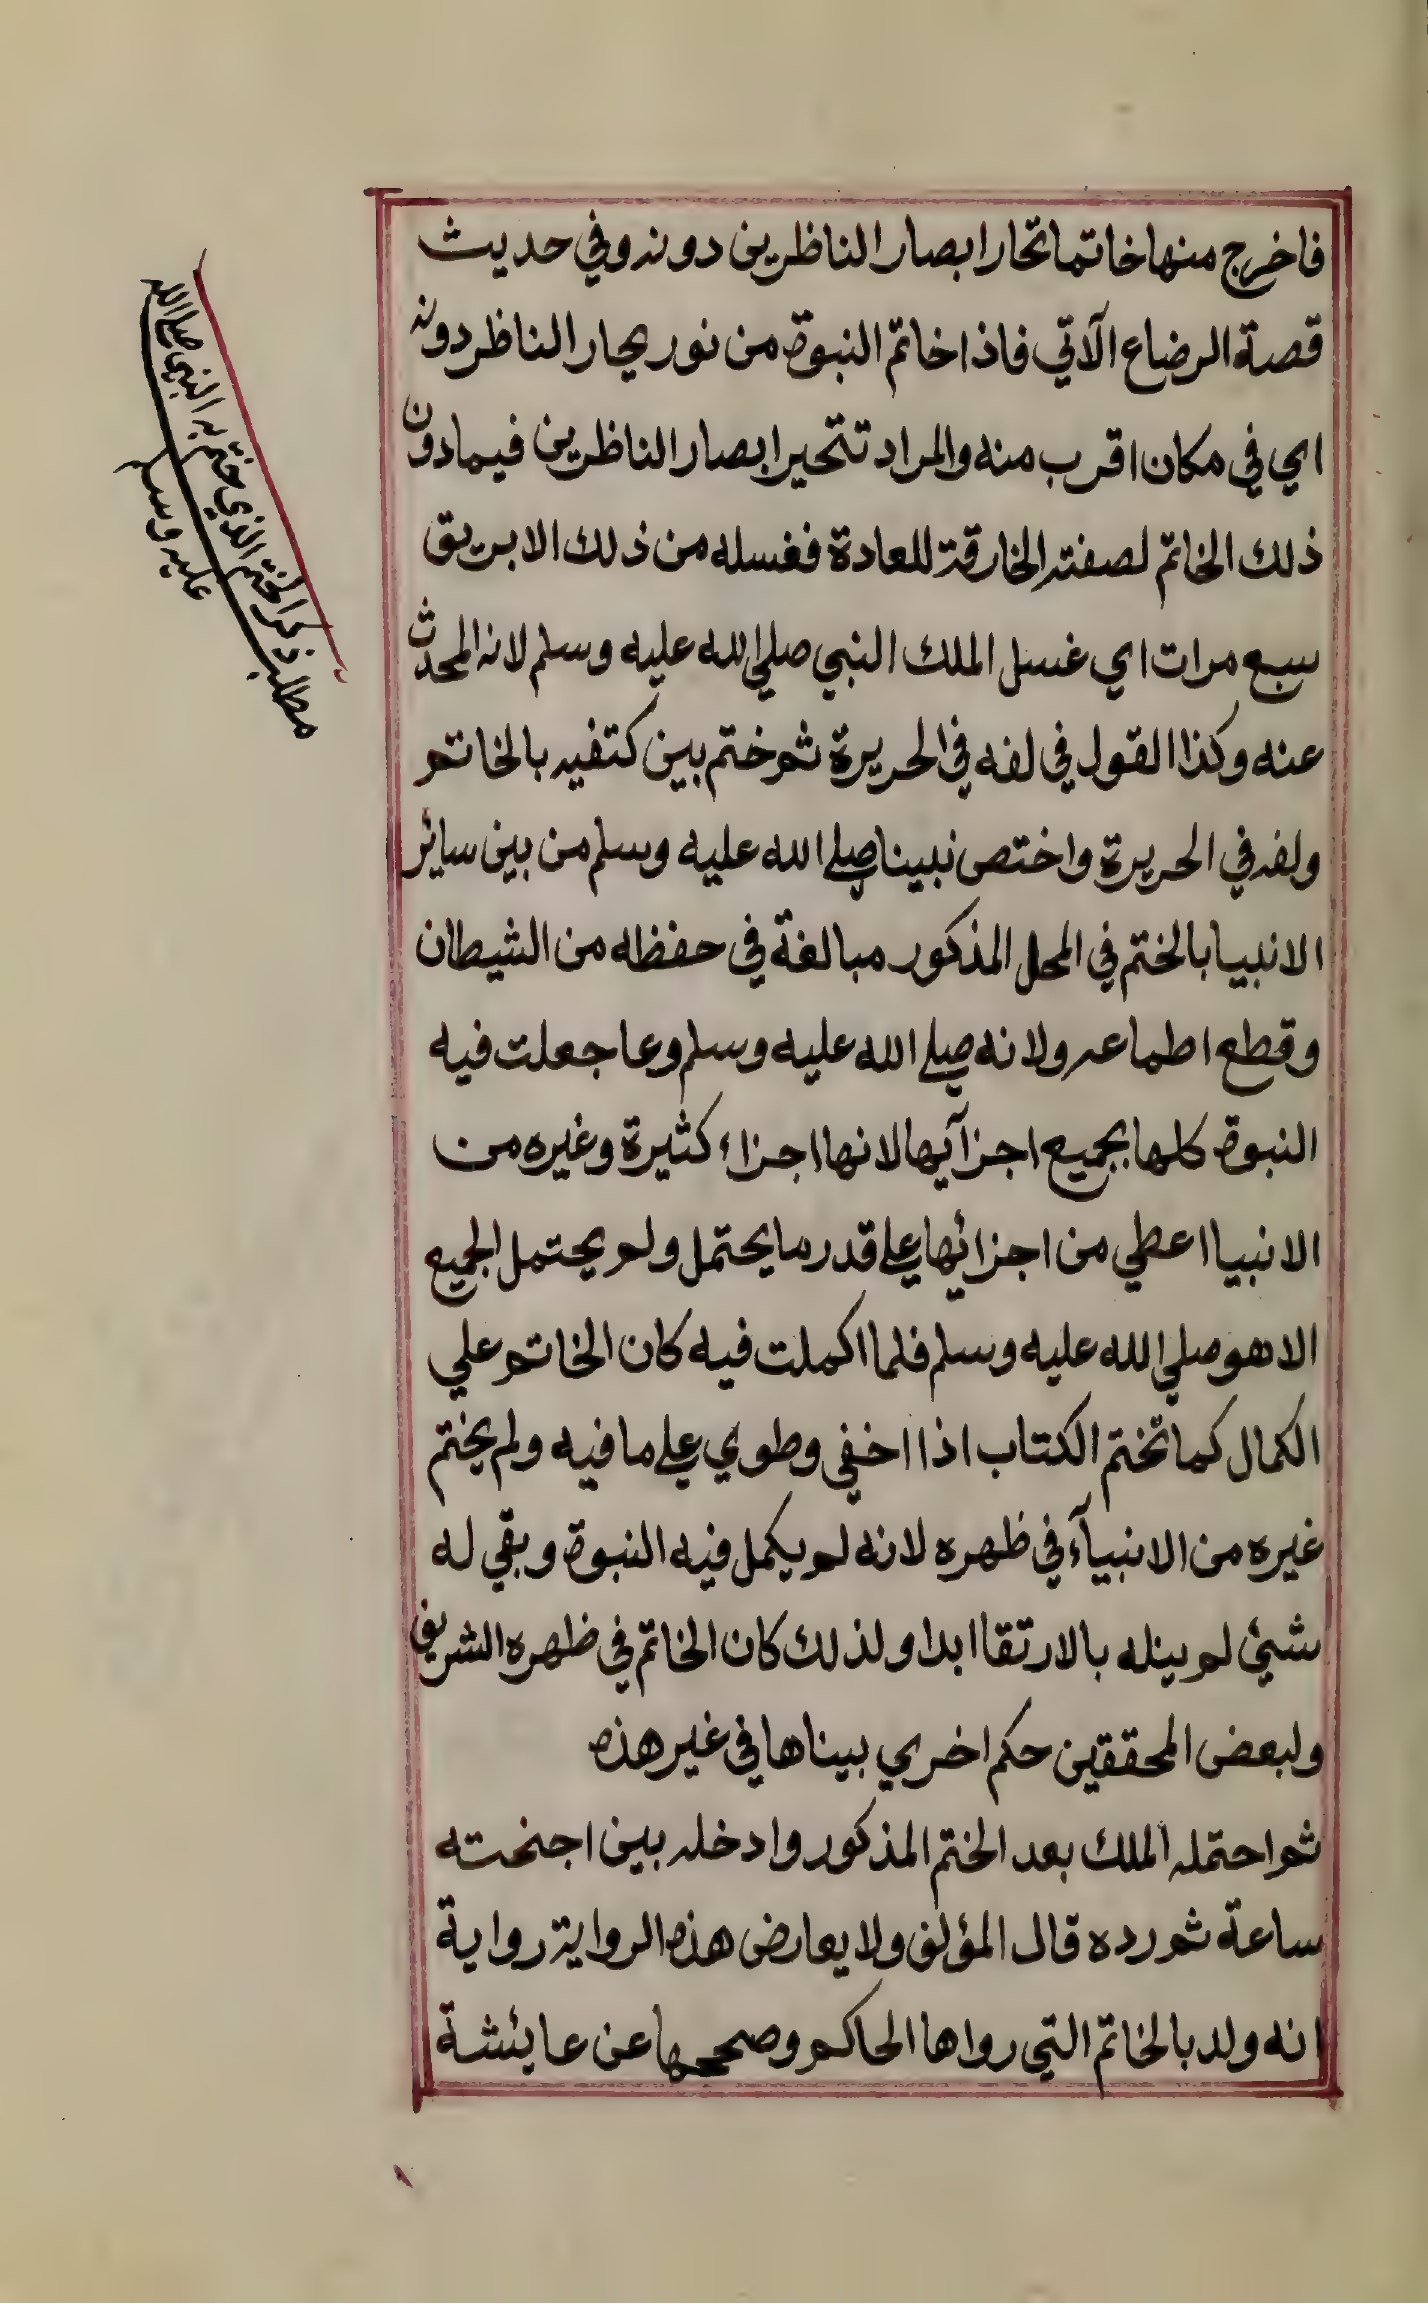 فاخرج منها خاتما تحار ابصار الناظرين دونه وفي حديث
قصة الرضاع الآتي فاذا خاتم النبوة من نور يحار الناظر دونه
اي في مكان اقرب منه والمراد تتحير ابصار الناظرين فيما دون
ذلك الخاتم لصفته الخارقة للعادة فغسله من ذلك الابريق
سبع مرات اي غسل الملك النبي صلي الله عليه وسلم لانه المحدث
عنه وكذا القول في لفه في الحريرة ثم ختم بين كتفيه بالخاتم
ولفه في الحريرة واختص نبينا صلي الله عليه وسلم من بين سائر
الانبيا بالختم في المحل المذكور مبالغة في حفظه من الشيطان
وقطع اطماعه ولانه صلي الله عليه وسلم وعا جعلت فيه
النبوة كلها بجميع اجزآيها لانها اجزاء كثيرة وغيره من
الانبيا اعطي من اجزائها علي قدر ما يحتمل ولم يحتمل الجميع
الا هو صلي الله عليه وسلم فلما اكملت فيه كان الخاتم علي
الكمال كما تختم الكتاب اذا اخفي وطوي علي ما فيه ولم يختم
غيره من الانبيآء في ظهره لانه لم يكمل فيه النبوة وبقي له
شيئ لم يناله بالارتقا ابدا ولذلك كان الخاتم في ظهره الشريف
ولبعض المحققين حكم اخري بيناها في غير هذه
ثم احتمله الملك بعد الختم المذكور وادخله بين اجنحته
ساعة ثم رده قال المؤلف ولا يعارض هذه الرواية رواية
انه ولد بالخاتم التي رواها الحاكم وصححها عن عايئشة
مطلب ذكر الختم الذي ختم به النبي صلي الله
عليه وسلم